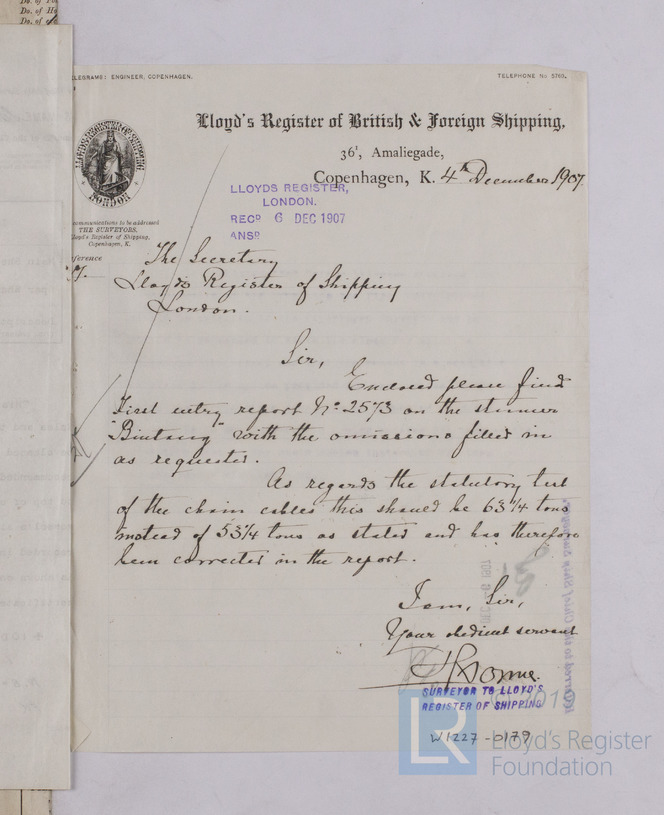 Do. of
Do. of
ELEGRAMS: ENGINEER, COPENHAGEN.
TELEPHONE No 5760.
Lloyd's Register of British & Foreign Shipping,
36¹, Amaliegade,
Copenhagen, K. 4th December 1907.
LLOYD'S REGISTER SHIPPING
LONDON
LLOYDS REGISTER,
LONDON.
RECD 6 DEC 1907
ANSD
ommunications to be addressed
THE SURVEYORS,
loyd's Register of Shipping,
Copenhagen, K.
ference
The Secretary
Lloyds Register of Shipping
London.
Sir,
Enclosed please find
First entry report No 2573 on the steamer
"Bintang" with the omissions filled in
as requested.
As regards the statutory test
of the chain cables this should be 63¼ tons
instead of 53¼ tons as stated and has therefore
been corrected in the report.
I am, Sir,
Your obedient servant
SURVEYOR TO LLOYD'S
REGISTER OF SHIPPING
W1227-0179
© 2019
LR
Lloyd's Register
Foundation